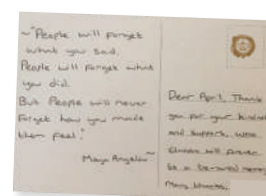 ~ "People will forget
what you said.
People will forget what
you did.
But People will never
forget how you made
them feel."
Maya Angelou ~
Dear April, Thank
you for your
and support.
will forever
be a
Many thanks